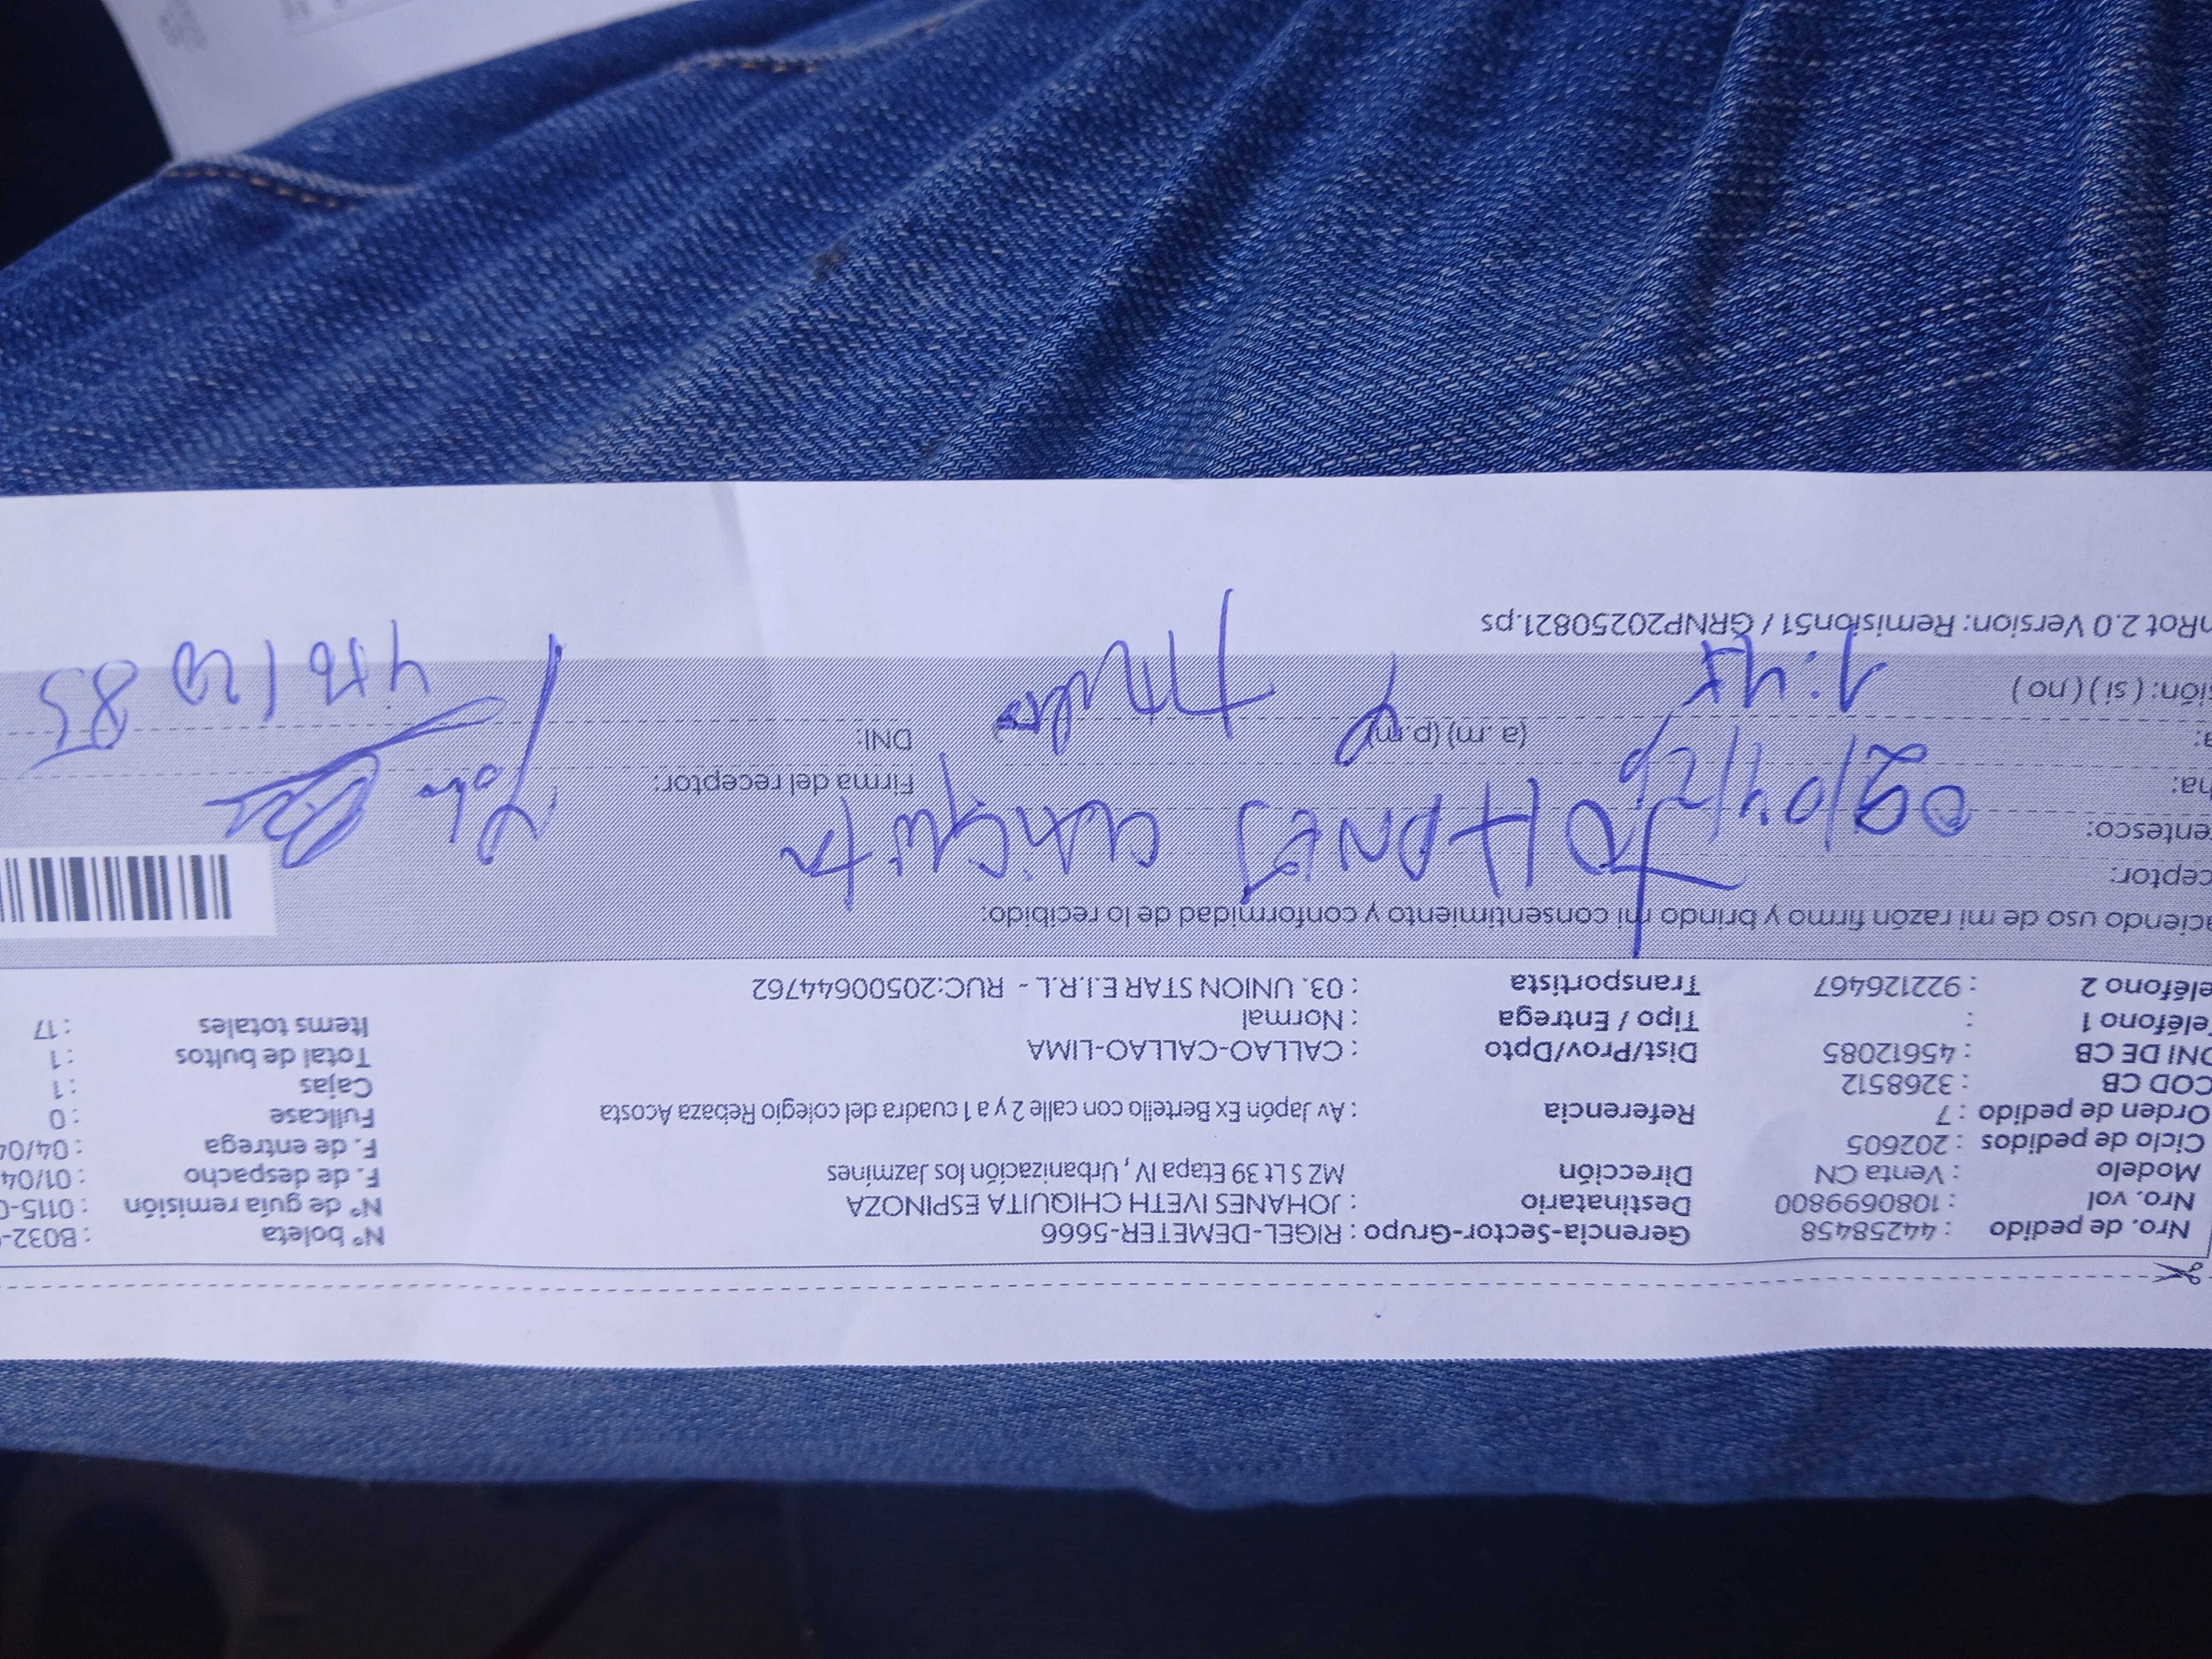 Nro. de pedido : 44258458 Gerencia-Sector-Grupo : RIGEL-DEMETER-5666 N° boleta : B032-
Nro. vol : 1080699800 Destinatario : JOHANES IVETH CHIQUITA ESPINOZA N° de guía remisión : 0115-0
Modelo : Venta CN Dirección MZ S Lt 39 Etapa IV , Urbanización los Jazmínes F. de despacho : 01/04
Ciclo de pedidos : 202605 F. de entrega : 04/04
Orden de pedido : 7 Referencia : Av Japón Ex Bertello con calle 2 y a 1 cuadra del colegio Rebaza Acosta Fullcase : 0
COD CB : 3268512 Cajas : 1
DNI DE CB : 45612085 Dist/Prov/Dpto : CALLAO-CALLAO-LIMA Total de bultos : 1
Teléfono 1 : Tipo / Entrega : Normal Items totales : 17
eléfono 2 : 922126467 Transportista : 03. UNION STAR E.I.R.L - RUC:20500644762
aciendo uso de mi razón firmo y brindo mi consentimiento y conformidad de lo recibido:
ceptor: JOHANES CHIQUITA
entesco:
ha: 02/04/26 Firma del receptor:
a: 1:45 (a. m) (p.m) DNI: 45612085
sión: ( si ) ( no )
nRot 2.0 Version: Remision51 / GRNP20250821.ps